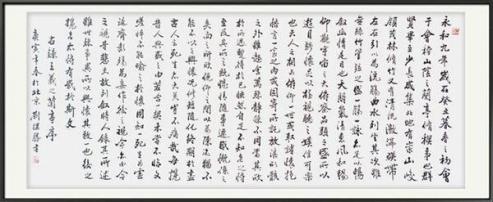 永和九年歲在癸丑暮春之初會
于會稽山陰之蘭亭脩稧事也群
賢畢至少長咸集此地有崇山峻
領茂林脩竹又有清流激湍暎帶
左右引以為流觴曲水列坐其次雖
無絲竹管弦之盛一觴一詠亦足以暢
敘幽情是日也天朗氣清惠風和暢
仰觀宇宙之大俯察品類之盛所以
遊目騁懷足以極視聽之娛信可樂
也夫人之相與俯仰一世或取諸懷抱
悟言一室之內或因寄所託放浪形骸
之外雖趣舍萬殊靜躁不同當其欣
於所遇暫得於己快然自足不知老之將
至及其所之既惓情隨事遷感慨係之
矣向之所欣俛仰之間以為陳跡猶不
能不以之興懷況脩短隨化終期於盡
古人云死生亦大矣豈不痛哉每攬
昔人興感之由若合一契未嘗不臨文
嗟悼不能喻之於懷固知一死生為虛
誕齊彭殤為妄作後之視今亦由今
之視昔悲夫故列敘時人錄其所述
雖世殊事異所以興懷其致一也後之
攬者亦將有感於斯文
右錄王羲之蘭亭序
庚寅年春於北京 劉 書